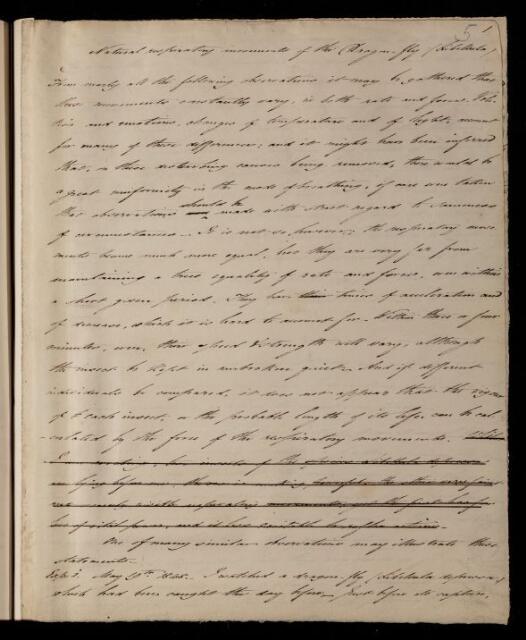 5
Natural respiratory movements of the Dragon-fly (Libellula)
From nearly all the following observations it may be gathered that
these movements constantly vary, in both rate and force. Voli-
tion and emotions, changes of temperature and of light, account
for many of these differences; and it might have been inferred
that, on these disturbing causes being removed, there would be
a great uniformity in the mode of breathing, if care was taken
that observations should be made with strict regard to sameness
of circumstances. It is not so, however; the respiratory move-
ments become much more equal, but they are very far from
maintaining a true equality of rate and force, even within
a short given period. They have their times of acceleration and
of decrease, which it is hard to account for. Within three or four
minutes, even, their speed & strength will vary, although
the insect be kept in unbroken quiet. And if different
individuals be compared, it does not appear that the vigour
of each insect, or the probable length of its life, can be cal-
culated by the force of the respiratory movements.
insects of the
lying before me,
of vital power, and
One of many similar observations may illustrate these
statements.
Exp. 1. May 29th. I watched a dragon-fly (Libellula
which had been caught the day before. Just before its capture,